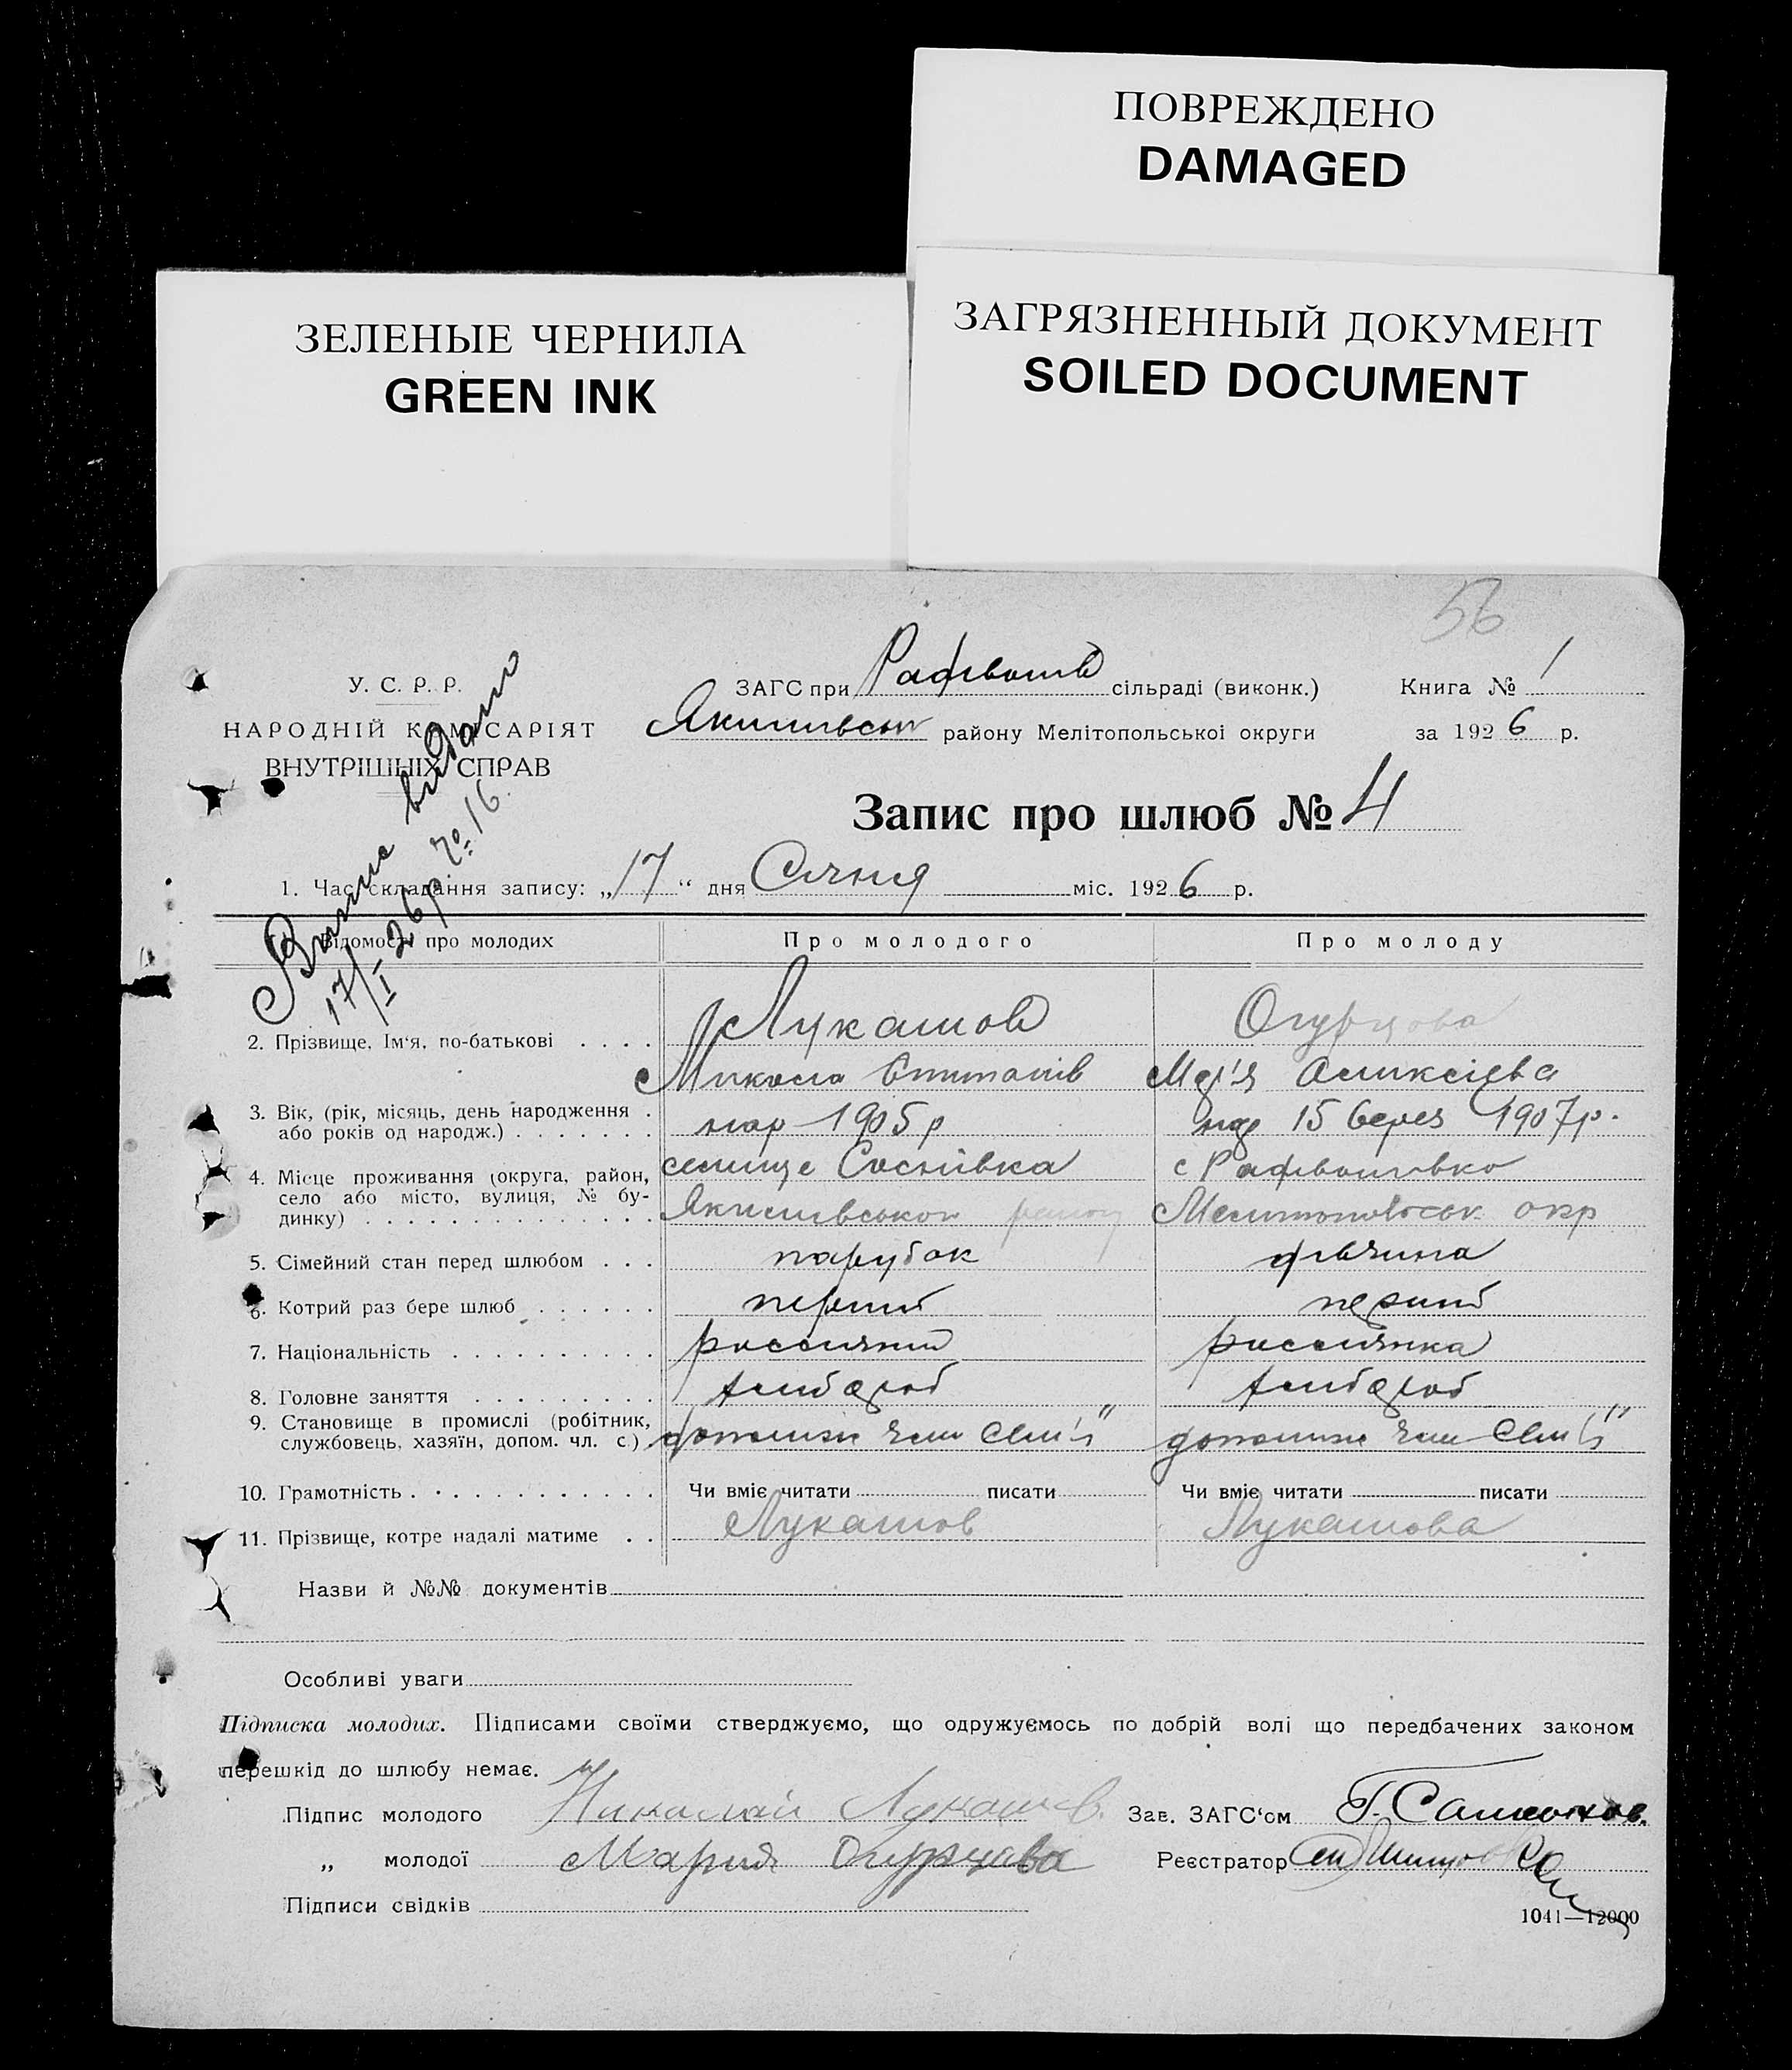 ПОВРЕЖДЕНО
DAMAGED
ЗЕЛЕНЫЕ ЧЕРНИЛА
GREEN INK
ЗАГРЯЗНЕННЫЙ ДОКУМЕНТ
SOILED DOCUMENT
56
У. С. Р. Р.
НАРОДНІЙ КОМІСАРІЯТ
ВНУТРІШНІХ СПРАВ
Випис видано
17/I 26 р. № 16.
ЗАГС при сільраді (виконк.) Книга № 1
району Мелітопольської округи за 1926 р.
Запис про шлюб № 4
1. Час складання запису: „17“ дня Січня міс. 1926 р.
Відомості про молодих Про молодого Про молоду
Лукашов Огурцова
2. Прізвище, Ім'я, по-батькові . . . .
Микола
3. Вік, (рік, місяць, день народження . нар 1905 р нар 15 берез 1907 р.
або років од народж.) . . . . . . .
4. Місце проживання (округа, район, селище Соснівка с
село або місто, вулиця, № бу-
динку) . . . . . . . . . . . . . . району окр
5. Сімейний стан перед шлюбом . . . парубок дівчина
6. Котрий раз бере шлюб . . . . . . перший перший
7. Національність . . . . . . . . . . россиянка
8. Головне заняття . . . . . . . . . хлібороб хлібороб
9. Становище в промислі (робітник,
службовець, хазяїн, допом. чл. с.) член семії член семії
10. Грамотність . . . . . . . . . . . . Чи вміє читати писати Чи вміє читати писати
11. Прізвище, котре надалі матиме . . Лукашов Лукашова
Назви й №№ документів
Особливі уваги
Підписка молодих. Підписами своїми стверджуємо, що одружуємось по добрій волі що передбачених законом
перешкід до шлюбу немає.
Підпис молодого Николай Лукашев. Зав. ЗАГС‘ом
„ молодої Мария Огурцова Реєстратор
Підписи свідків
1041—12000